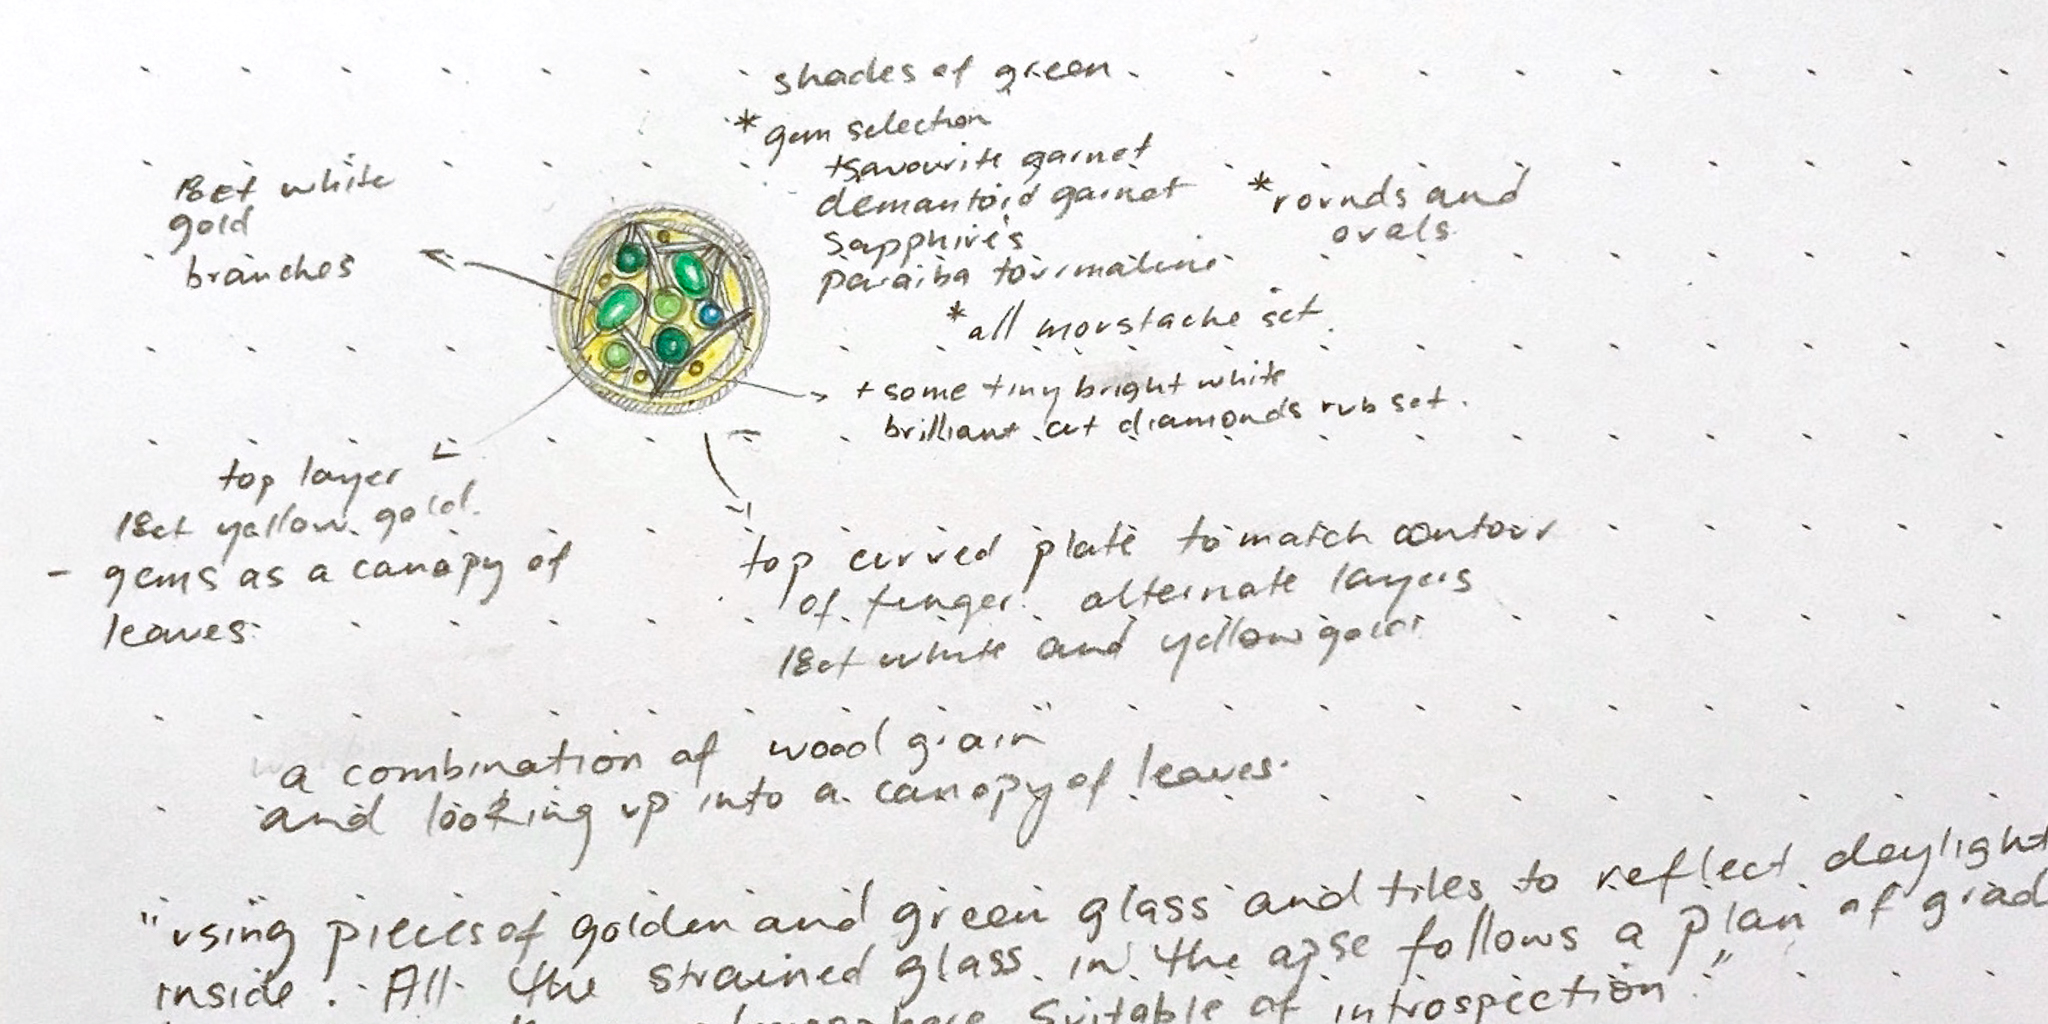 shades of green.
* gem selection
tsavourite garnet
demantoid garnet
sapphires
paraiba tourmaline
* rounds and
ovals
* all moustache set.
+ some tiny bright white
brilliant cut diamonds rub set.
18ct white
gold
branches
top layer
18ct yellow gold.
- gems as a canopy of
leaves.
top curved plate to match contour
of finger. alternate layers
18ct white and yellow gold
a combination of "wood grain"
and looking up into a canopy of leaves.
"using pieces of golden and green glass and tiles to reflect daylight
inside. All the strained glass in the apse follows a plan of grad
suitable of introspection."